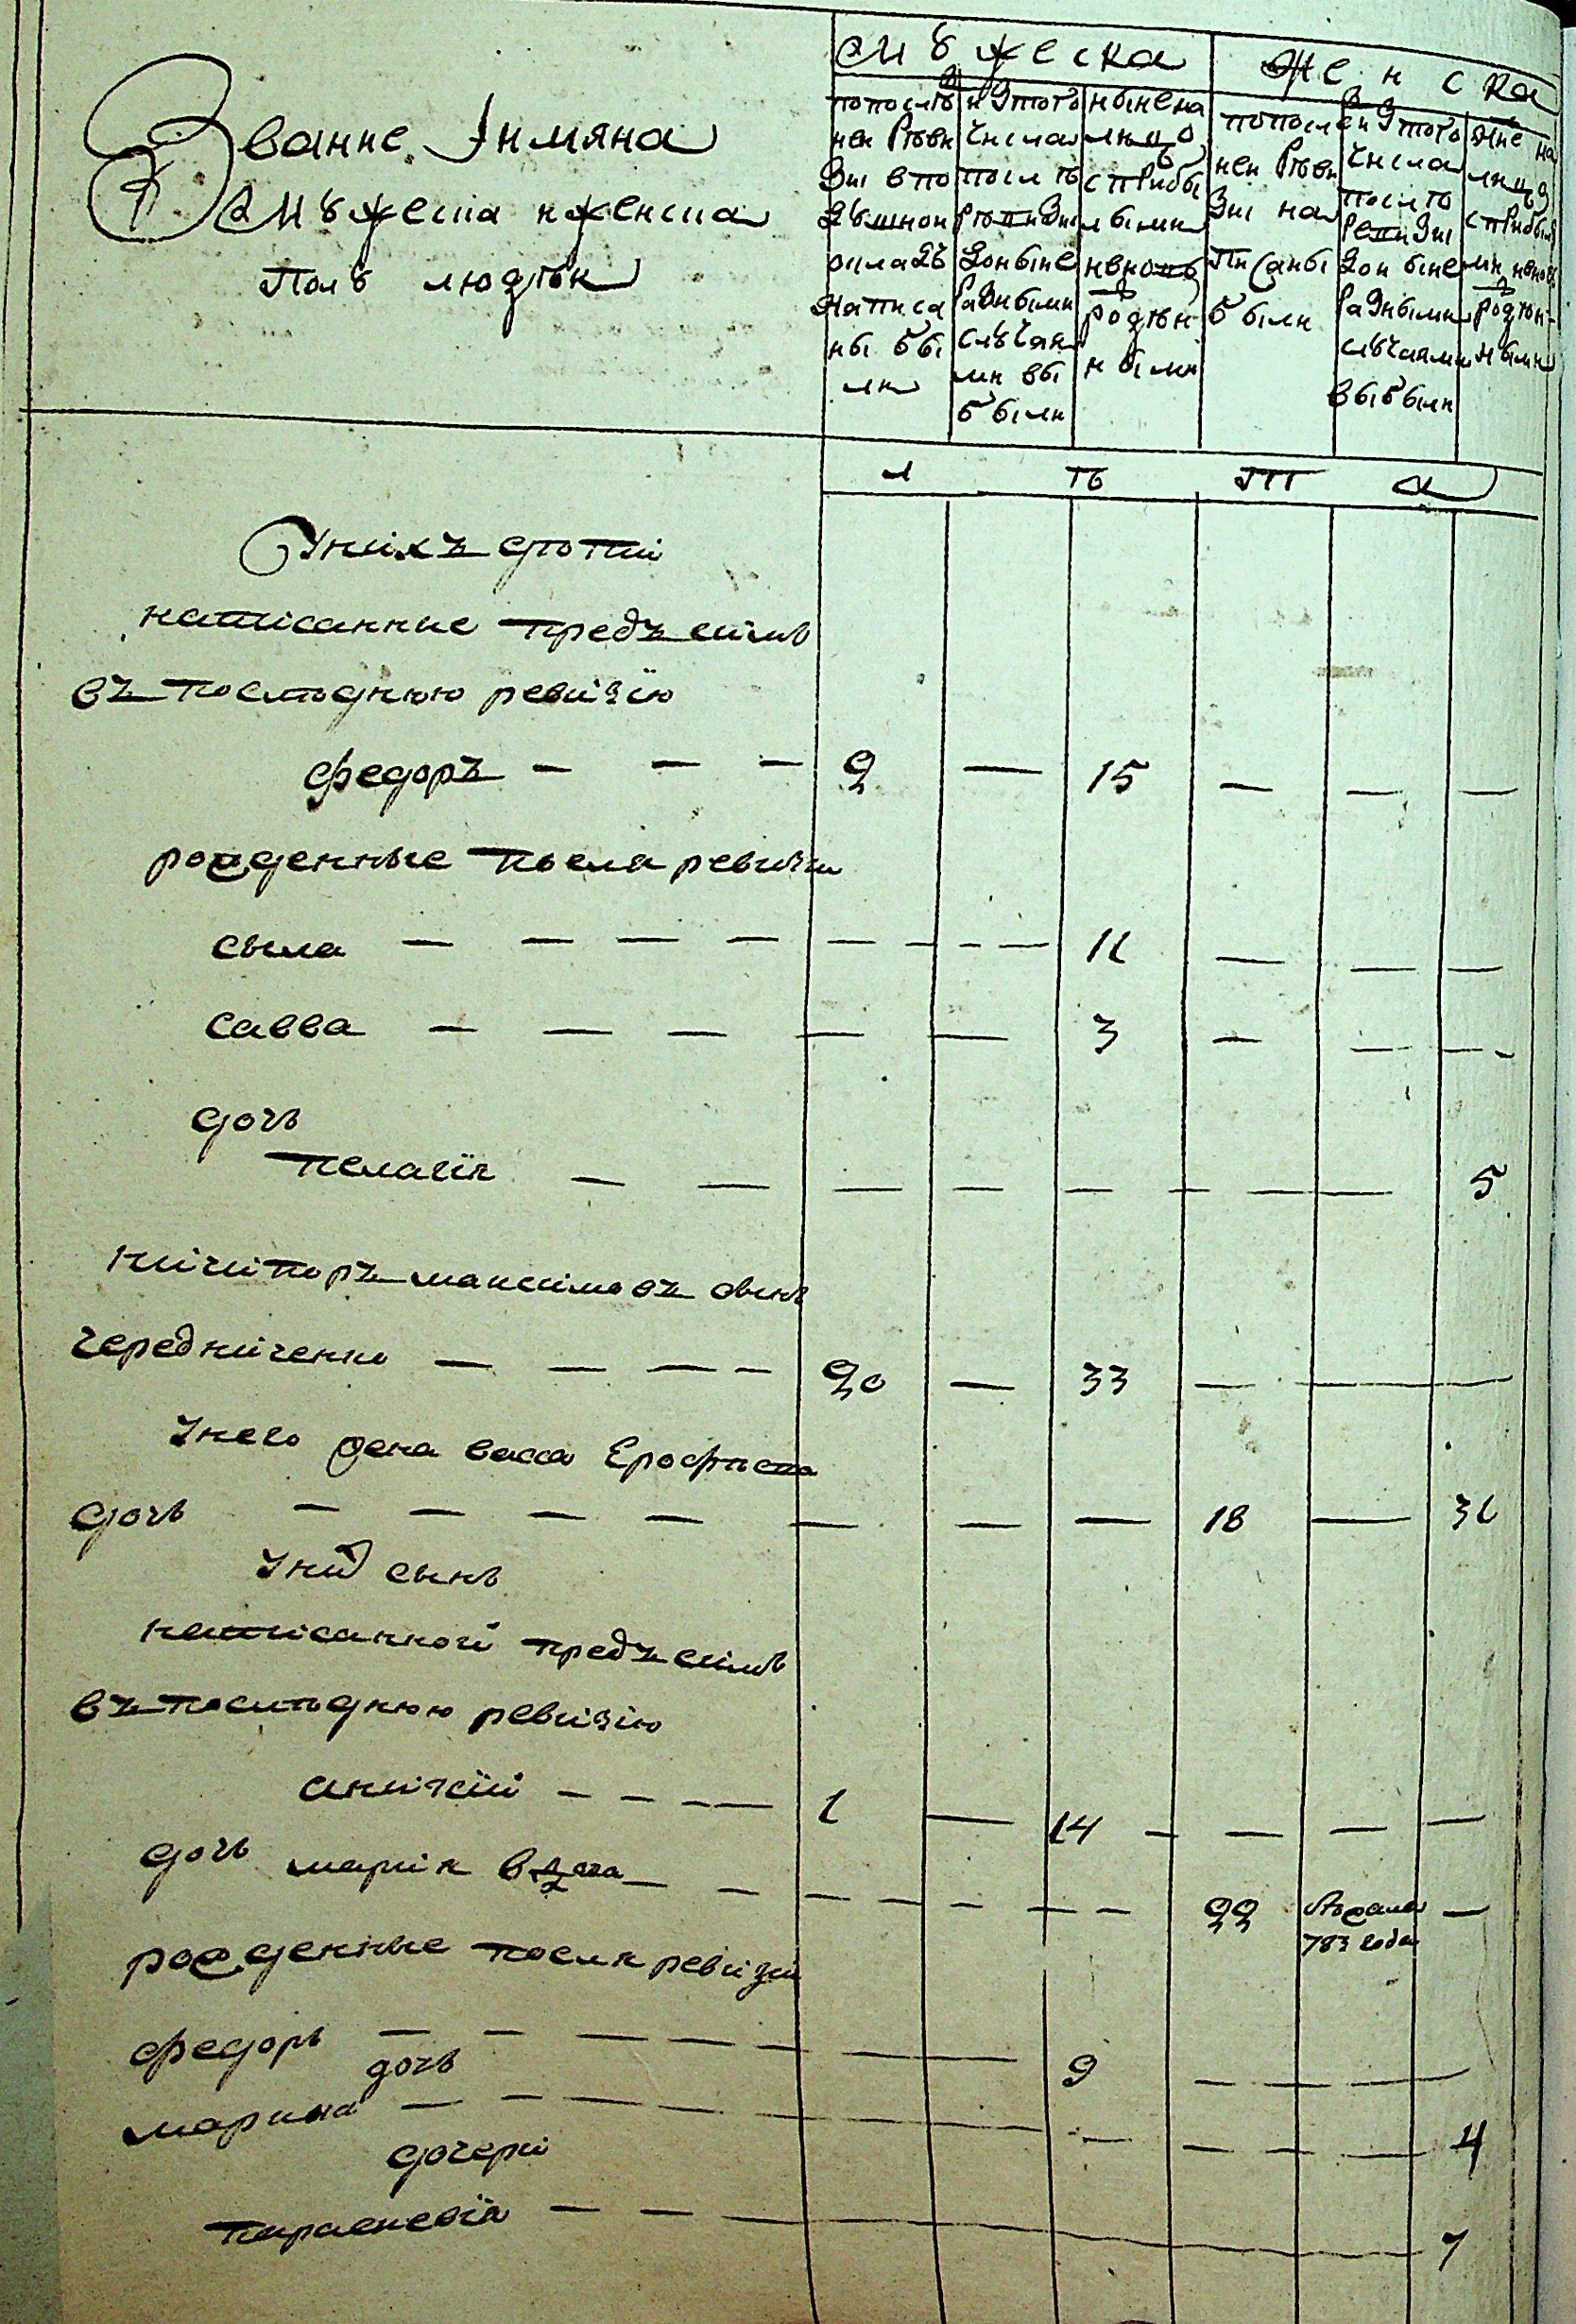 Звание Имяна
Мужеска и женска
Полу людеи
мужеска
женска
попослѣ
неи Реви
зи в по
душнои
окладъ
написа
ны бы
ли
изтого
числа
послѣ
Ревизи
доныне
разными
случаи
ми вы
были
ныне на
лицо
с прибы
лыми
и вновь
рожден
ными
попослѣ
неи Реви
зи на
писаны
были
изтого
числа
послѣ
Ревизи
доныне
разными
случаями
выбыли
ныне на
лицо
с прибылы
ми и вновь
рожден-
ными
л ѣ т а
У нихъ дѣти
написанные предъ симъ
въ последнюю ревизию
федоръ — — — 2 — 15 — — —
рожденные посля ревизии
сыла — — — — — — — — 11 — — —
савва — — — — — 3 — — —
дочь
пелагія — — — — — — — — 5
никифоръ максимовъ сынъ
чередниченко — — — — 20 — 33 — — —
У него жена васса Ерофѣева
дочь — — — — — — — 18 — 31
У них сынъ
написанной предъ симъ
въ последнюю ревизию
аникій — — — — 1 — 14 — — — —
дочь мария взята — — — — — — — 22 в 783 года —
рожденные посля ревизии
федоръ — — — — — — — 9 — — — —
дочь
марина — — — — — — — — — — 4
дочери
параскевія — — — — 7